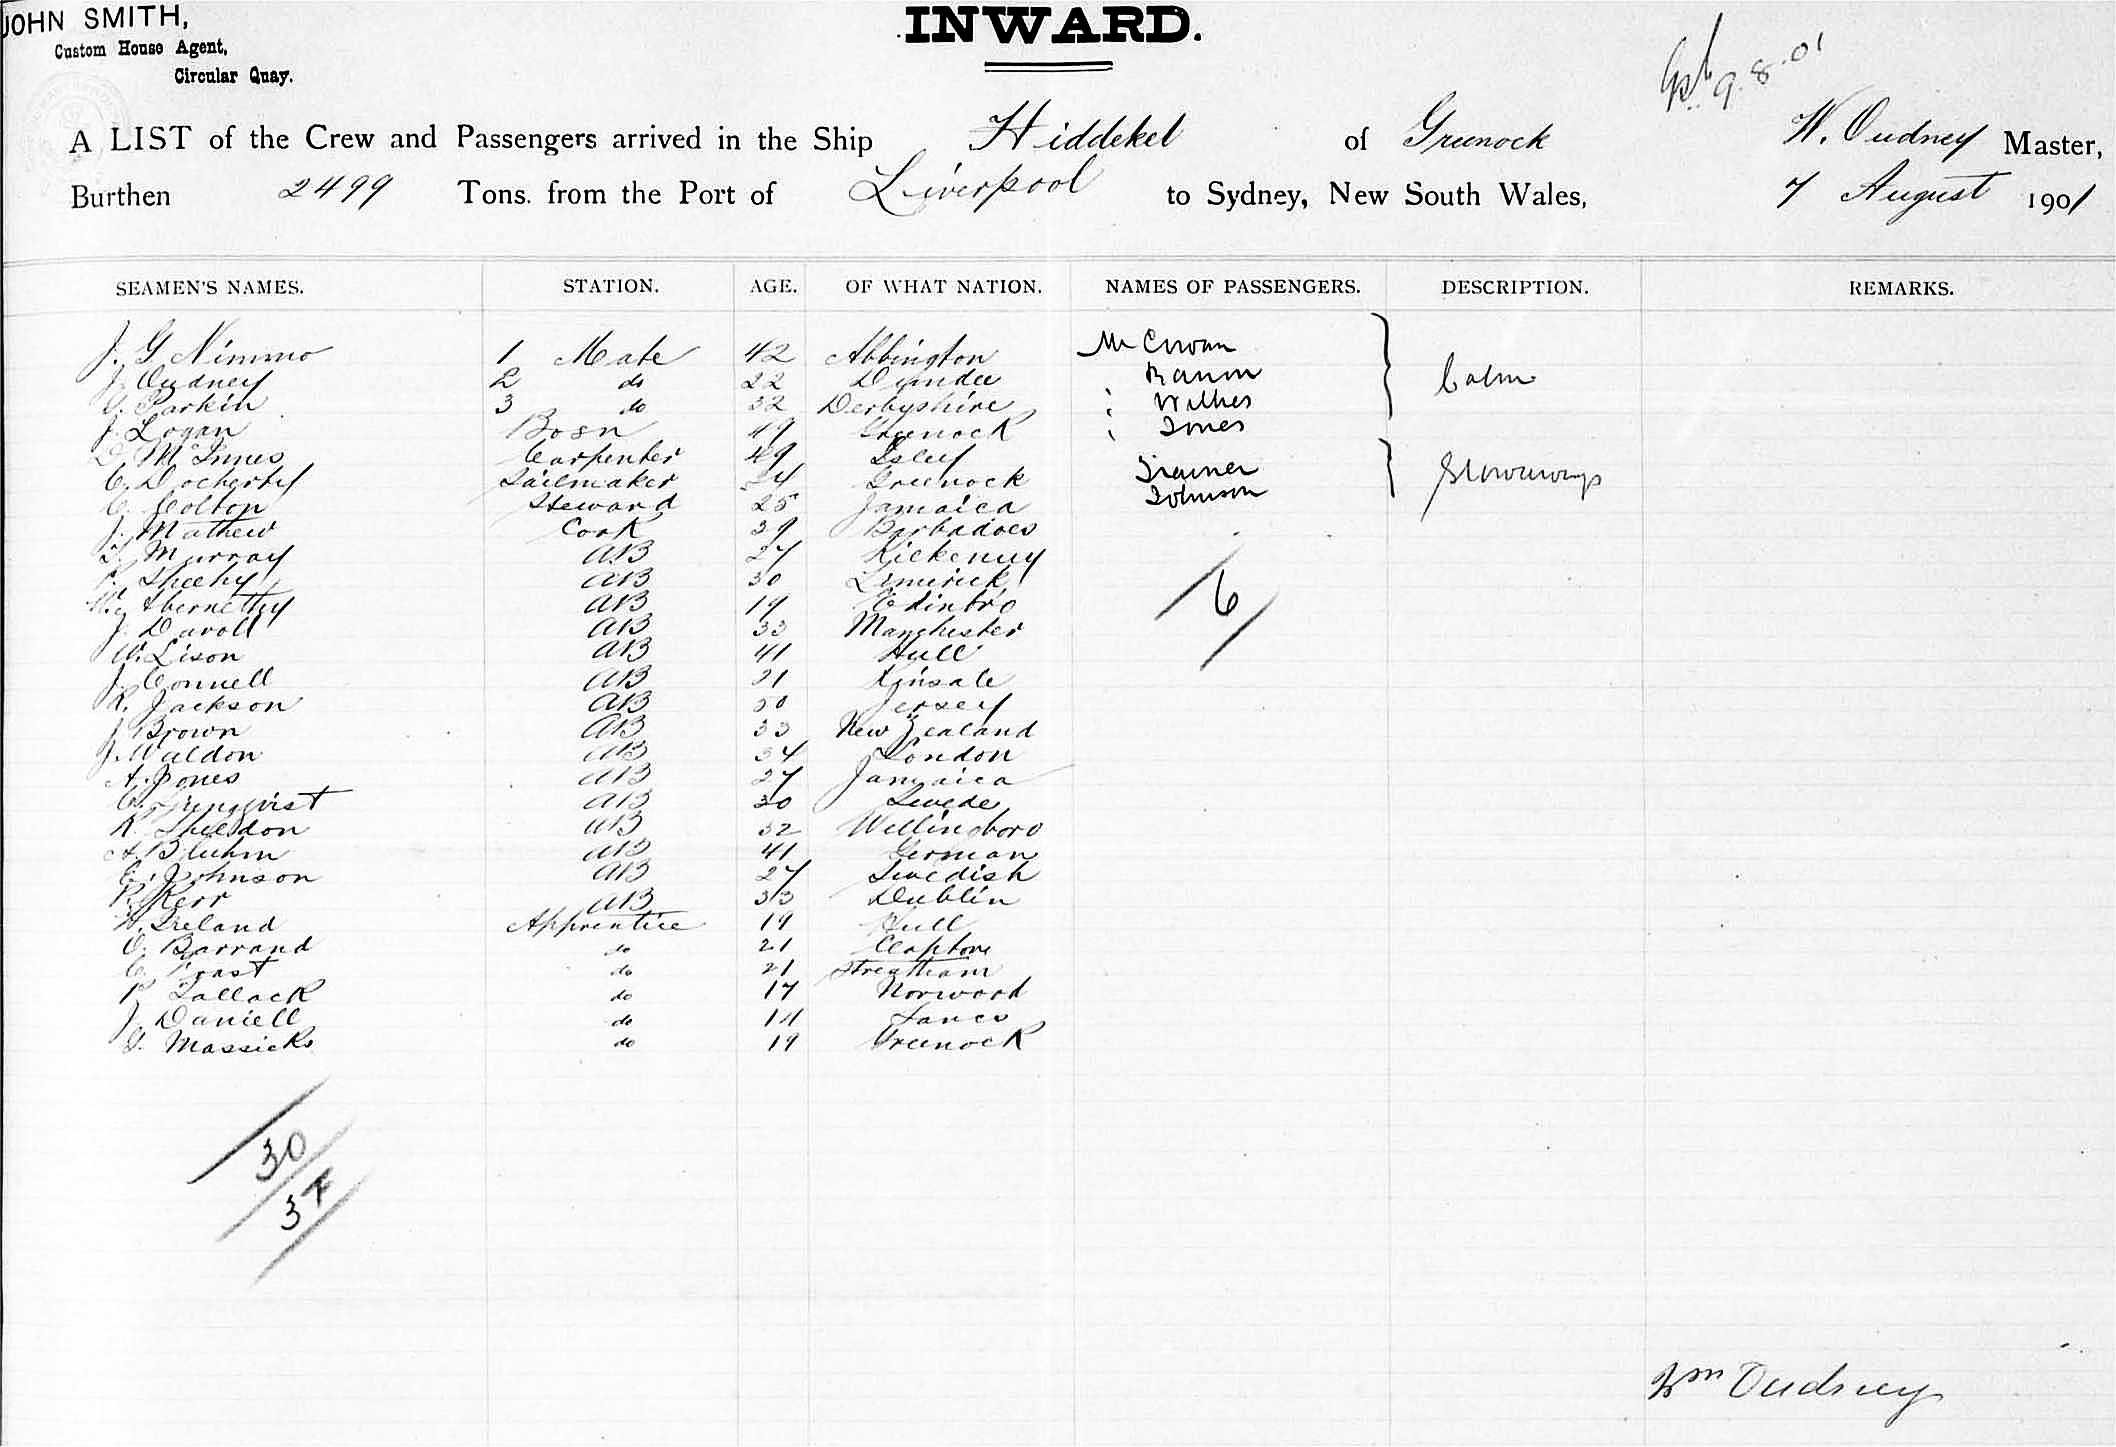 JOHN SMITH,
Custom House Agent,
Circular Quay.
INWARD.
9.8.01
A LIST of the Crew and Passengers arrived in the Ship Hiddekel of Greenock W. Oudney Master,
Burthen 2499 Tons. from the Port of Liverpool to Sydney, New South Wales, 7 August 1901
SEAMEN'S NAMES. STATION. AGE. OF WHAT NATION. NAMES OF PASSENGERS. DESCRIPTION. REMARKS.
J. G. Nimmo 1 Mate 42 Abbington Mr Cowan
J. Oudney 2 do 22 Dundee Cabin
Parkin 3 do 32 Derbyshire Wilkes
J. Logan Bosn 49 Greenock Jones
D. McInnes Carpenter 49 Isley Trainer
C. Docherty Sailmaker Greenock Stowaways
C. Colton Steward 25 Jamaica Johnson
J. Mathew Cook 39 Barbadoes
T. Murray AB 27 Kilkenny
P. Sheehy AB 30 Limerick 6
W. Abernethy AB 19 Edinbro
J. Davoll AB 33 Manchester
W. Lison AB 41 Hull
J. Connell AB 21 Kinsale
R. Jackson AB 30 Jersey
J. Brown AB 33 New Zealand
J. Waldon AB 34 London
A. Jones AB 27 Jamaica
C. AB 30 Swede
R. Sheldon AB 32 Wellingboro
A. Bluhm AB 41 German
C. Johnson AB 27 Swedish
P. Kerr AB 33 Dublin
W. Ireland Apprentice 19 Hull
O. Barrand do 21 Clapton
C. Prast do 21 Streatham
P. Tallack do 17 Norwood
J. Daniell do Lancs
G. Massicks do 19 Greenock
30
37
Wm Oudney